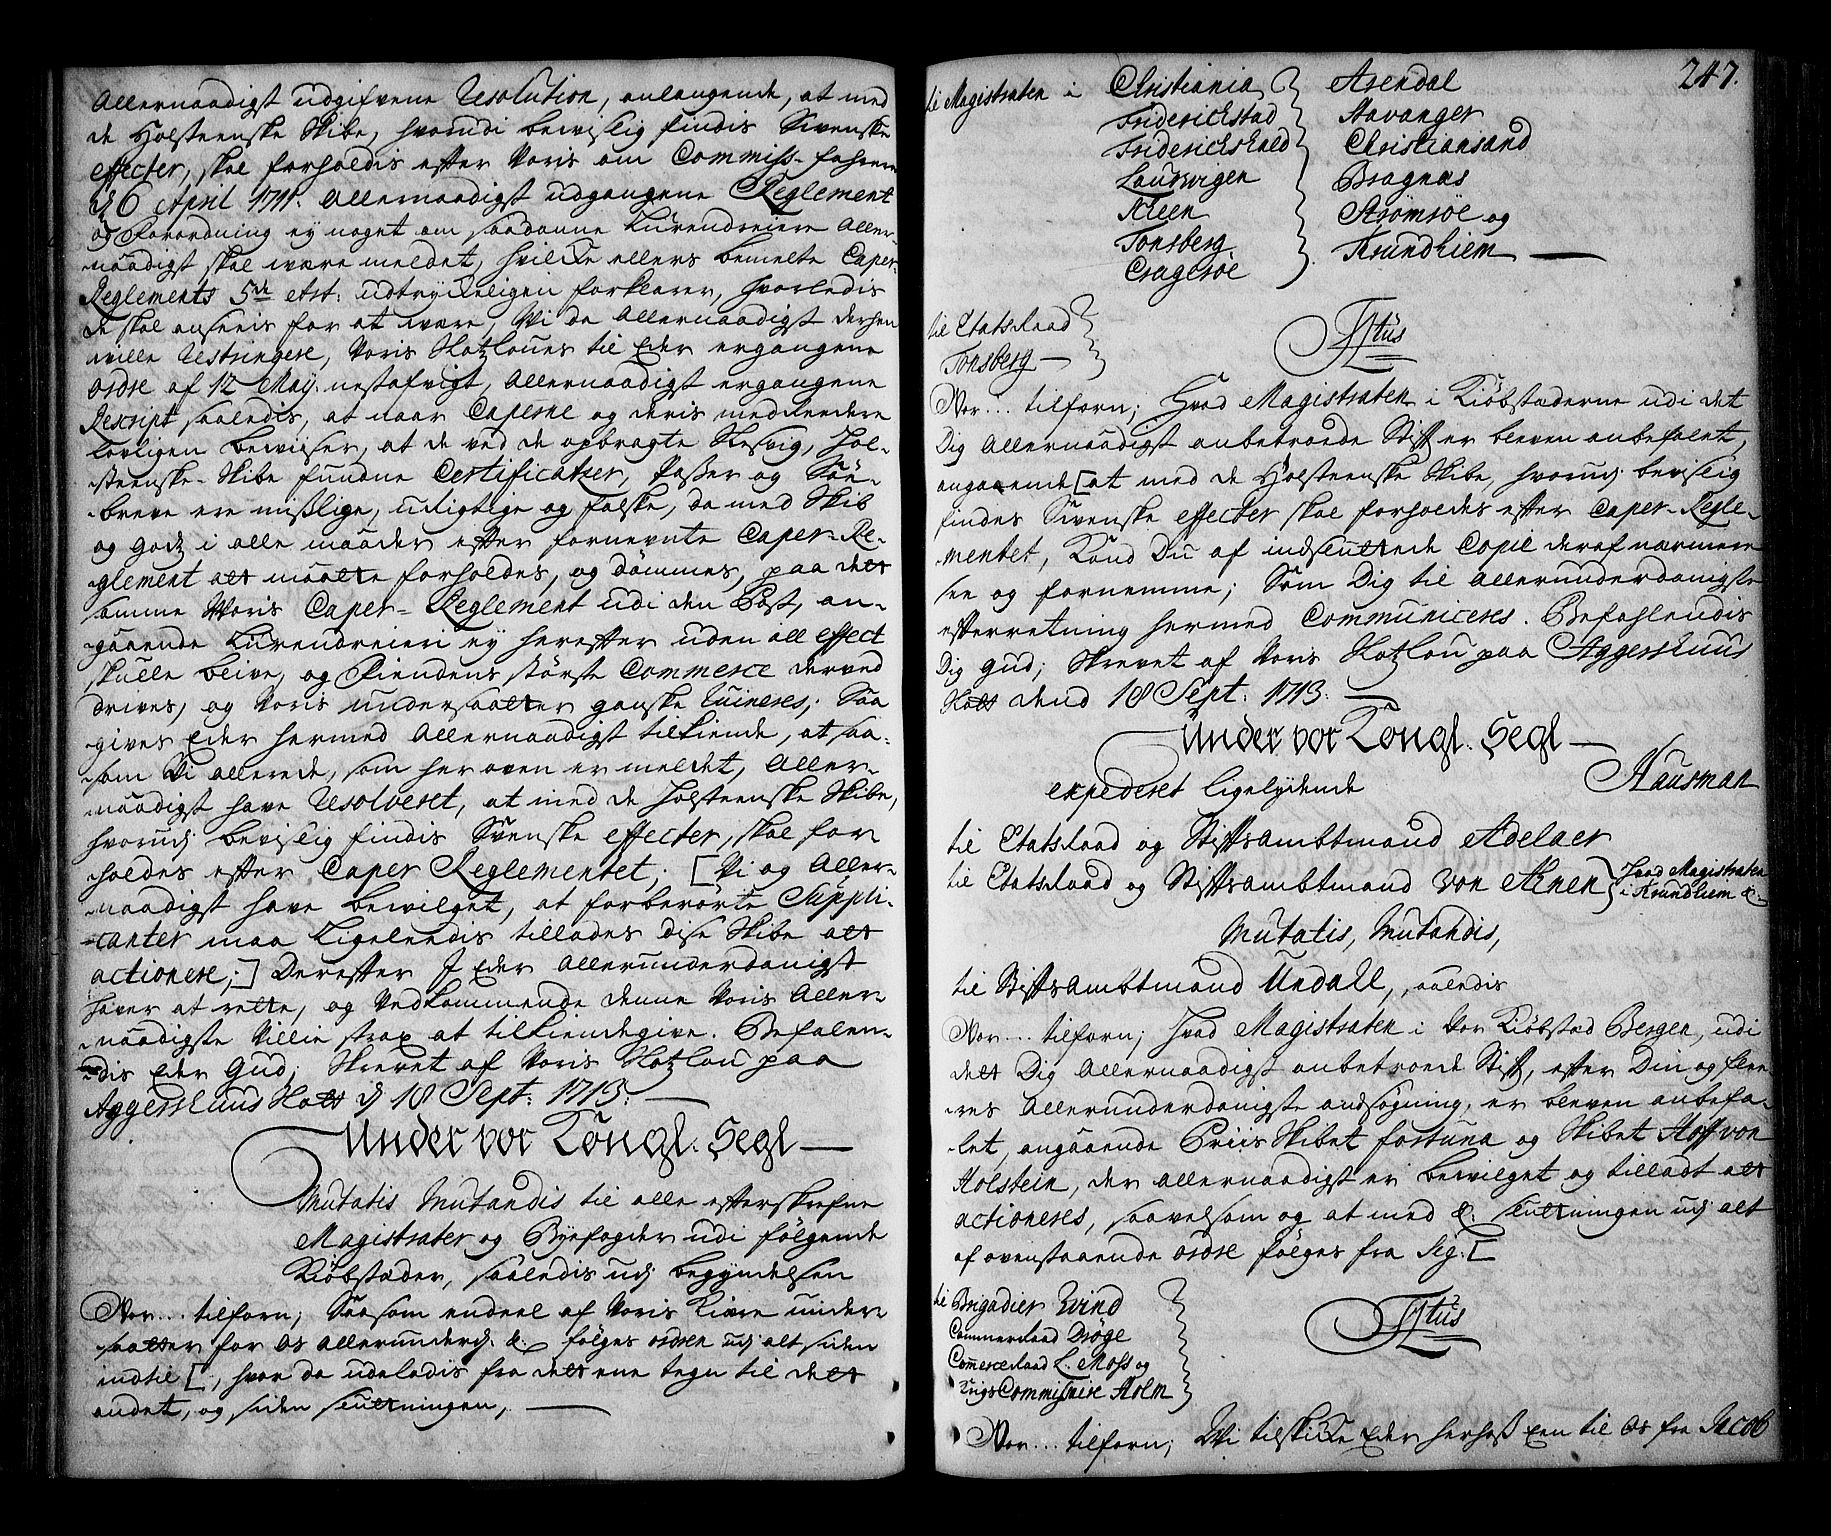 Allernaadigst udgifvene Resolution, anlangende, at med
de Holsteenske Skibe, hvorudi bevislig findis Svenske
effecter, skal forholdis efter Voris om Commiss-fahrere
d 6 April 1711. Allernaadigst udgangene Reglement
og Forordning ey noget om saadanne Lurendreiere Aller-
naadigst skal være meldet, hvilke ellers bemelte Caper-
Reglements 5te Art: udtrykkeligen forklarer, hvorledis
de skal ansees for at være, Vi da Allernaadigst derhen
wille Restringere, Voris Hotzlovers til Eder ergangene
ordre af 12 May nestafvigt, Allernaadigst ergangene
Rescript saaledis, at naar Caperne og deris medreedere
lovligen beviiser, at de ved de opbragte Slesvig, Hol-
steenske-Skibe fundne Certificatser, Passer og Söe-
breve ere mislige, urigtige og falske, da med Skib
og Godz i alle maader efter fornevnte Caper-Re-
glement alt maatte forholdes, og dömmes, paa det
samme Voris Caper-Reglement udi den Post, an-
gaaende Lurendreieri ey herefter uden all effect
skulle blive, og Fiendens störste Commerce derved
drives, og Voris undersaatter ganske Ruineres; Saa
gives Eder hermed Allernaadigst tilkiende, at saa-
som Vi allerede, som her oven er meldet, Aller-
naadigst have Resolveret, at med de Holsteenske Skibe,
hvorudj bevislig findis Svenske effecter, skal for-
holdes efter Caper Reglementet; [Vi og Aller-
naadigst have bewilget, at forberörte Suppli-
canter maa Ligeleedis tillades dise Skibe at
actionere;] Derefter J Eder Allerunderdanigst
haver at rette, og Vedkommende denne Voris Aller-
naadigste Villie strax at tilkiendegive. Befalen-
dis Eder Gud; Skrevet af Voris Hotzlov paa
Aggershuus Slott d 18 Sept: 1713.
Under vor Kongl. Segl
Mutatis Mutandis til alle efterskrefne
Magistrater og Byefogder udi fölgende
Kiöbstæder, saaledis udj begyndelsen
Vor... tilforn; Saasom endeel af Voris Kiære under-
saatter for Os allerunderd: &. fölges ordren udj alt, siden
indtil [, hvor da udeladis fra det ene tegn til det
andet, og siden slutningen,
247.
til Magistraten i Christiania
Friderichstad
Friderichshald
Laurwigen
Skeen
Tonsberg
Cragerøe
Arendal
Stavanger
Christiansand
Bragnæs
Strömsöe og
Trundhiem
til Etatsraad
Tonsberg
Tjtus
Vor... tilforn; Hvad Magistraten i Kiöbstæderne udi det
Dig Allernaadigst anbetroede Stift er bleven anbefalet,
angaaende [at med de Holsteenske Skibe, hvorudj bevislig
findes Svenske effecter skal forholdes efter Caper-Regle-
mentet, kand Du af indsluttede Copie deraf nærmere
see og fornemme; Som Dig til Allerunderdanigste
efterretning hermed Communiceres. Befahlendis
Dig Gud; Skrevet af Voris Hotzlov paa Aggershuus
Slott dend 18 Sept: 1713.
Under vor Kongl. Segl
Hausman
expederet ligelydende
til Etatsraad og Stiftsambtmand Adelaer
til Etatsraad og Stiftsambtmand von Ahnen } Hvad Magistraten
i Trundhiem &.
Mutatis, Mutandis,
til Stiftsambtmand Undall, saaledis
Vor... tilforn; Hvad Magistraten i Vor Kiöbstad Bergen, udi
det Dig Allernaadigst anbetroede Stift, efter Din og flee-
res Allerunderdanigste ansögning, er bleven anbefa-
let, angaaende Priis Skibet Fortuna og Skibet Hoff von
Holstein, der allernaadigst er bewilget og tilladt at
actioneres, saavelsom og at med &. slutningen udj alt
af ovenstaaende ordre fölges fra Sig: [
til Brigadier Wind
Commerceraad Dröge
Commerceraad L. Moss og
Krigs Commissarie Holm
Tjtus
Vor... tilforn; Wi tilskikke Eder herhos een til Os fra Jacob